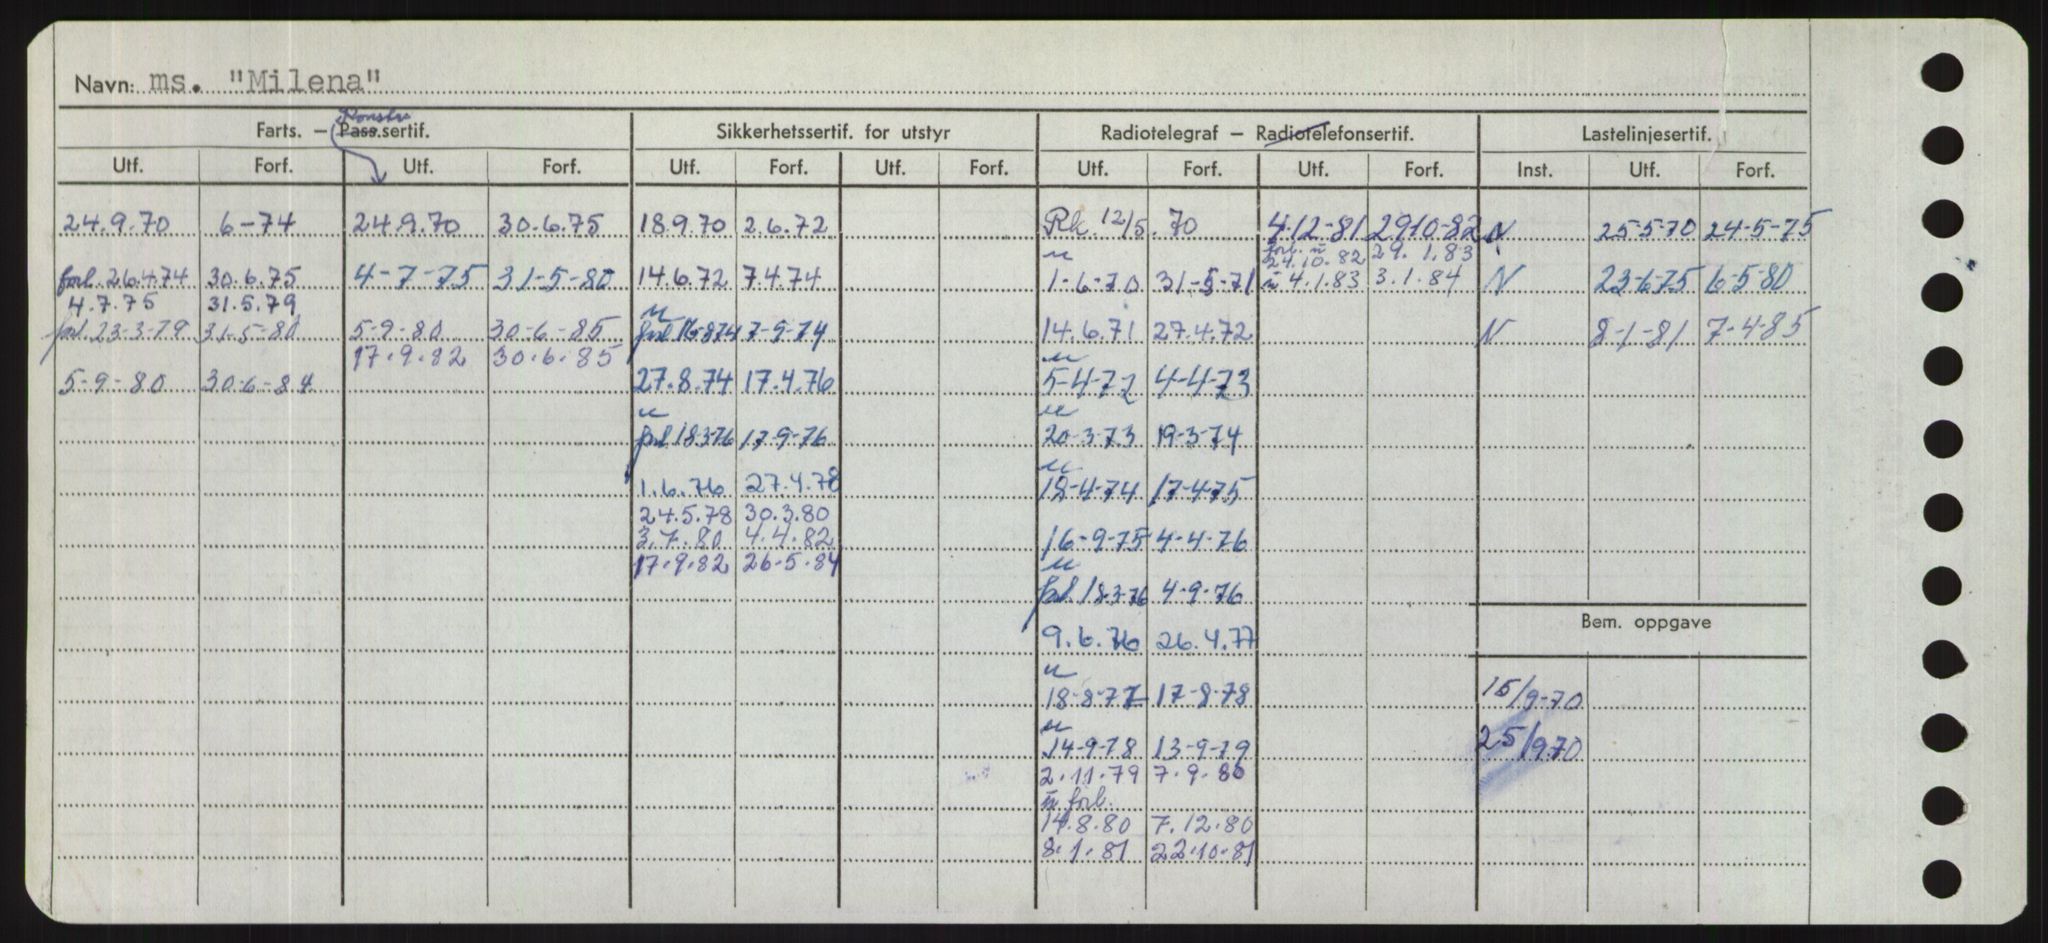 Navn: ms. "Milena"
Konstr.
Farts. – Pass.sertif. Sikkerhetssertif. for utstyr Radiotelegraf – Radiotelefonsertif. Lastelinjesertif.
Utf. Forf. Utf. Forf. Utf. Forf. Utf. Forf. Utf. Forf. Utf. Forf. Inst. Utf. Forf.
24.9.70 6-74 24.9.70 30.6.75 18.9.70 2.6.72 Rk. 12/5.70 4-12-81 29-10-82 N 25-5-70 24-5-75
u forl. u 24.10.82 29.1.83
forl. 26.4.74 30.6.75 4-7-75 31-5-80 14.6.72 7.4.74 1-6-70 31-5-71 u 4.1.83 3.1.84 N 23-6-75 6-5-80
4.7.75 31.5.79 u
forl. 23-3-79 31-5-80 5-9-80 30-6-85 forl 16-8-74 7-9-74 14.6.71 27.4.72 N 8-1-81 7-4-85
17.9.82 30.6.85 u
5-9-80 30-6-84 27.8.74 17.4.76 5-4-72 4-4-73
u u
forl 18-3-76 17-9-76 20-3-73 19-3-74
u
1.6.76 27.4.78 18-4-74 17-4-75
24.5.78 30.3.80
3.7.80 4.4.82 16-9-75 4-4-76
17.9.82 26.5.84 u
forl. 18-3-76 4-9-76
Bem. oppgave
9.6.76 26.4.77
u
18-8-77 17-8-78 15/9-70
u
14-9-78 13-9-79 25/9.70
2.11.79 7.9.80
u forl.
14.8.80 7.12.80
8.1.81 22.10.81